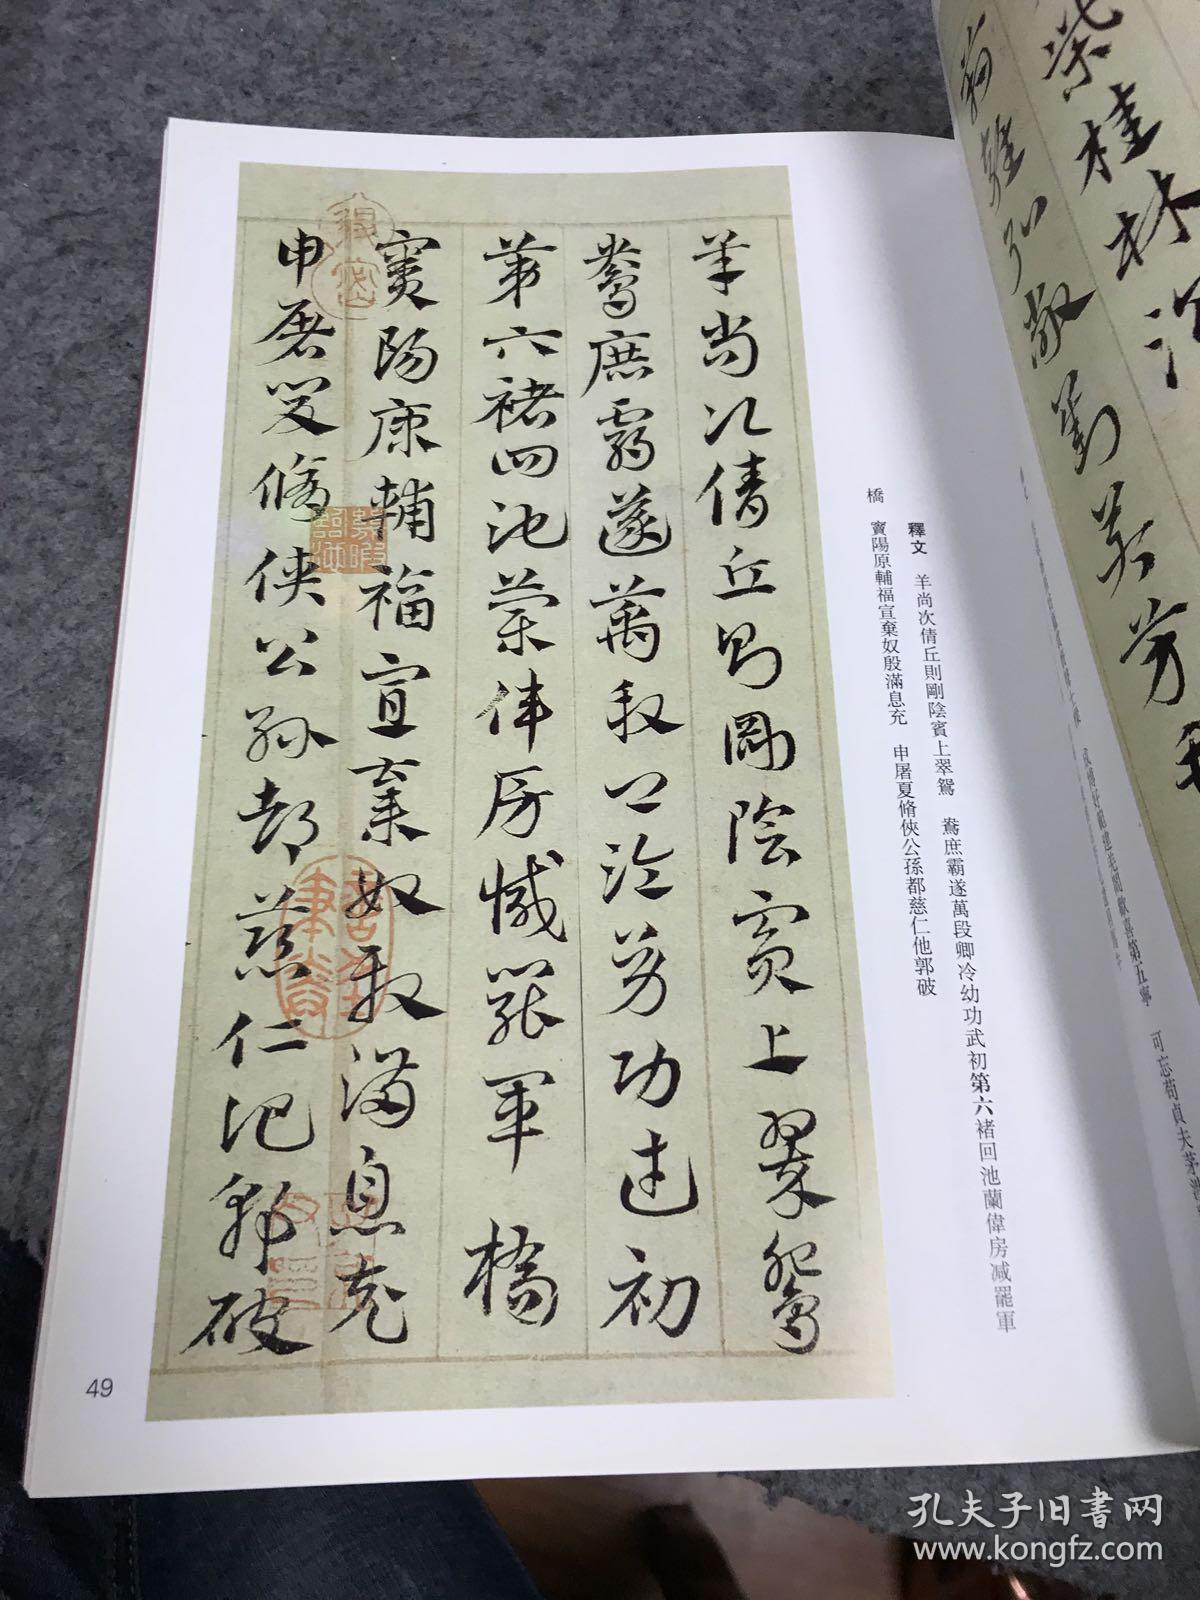 羊尚次倩丘則罡陰賓上翠鴛
鴦庶霸遂萬段卿冷幼功武初
第六褚四池蘭偉房減罷軍 橋
竇陽康輔福宣棄奴殷滿息充
申屠夏脩俠公孫都慈仁他郭破
釋文 羊尚次倩丘則剛陰賓上翠鴛 鴦庶霸遂萬段卿冷幼功武初第六褚回池蘭偉房減罷軍
橋 竇陽原輔福宣棄奴殷滿息充 申屠夏脩俠公孫都慈仁他郭破
49
紫桂林沼
孔夫子旧书网
www.kongfz.com